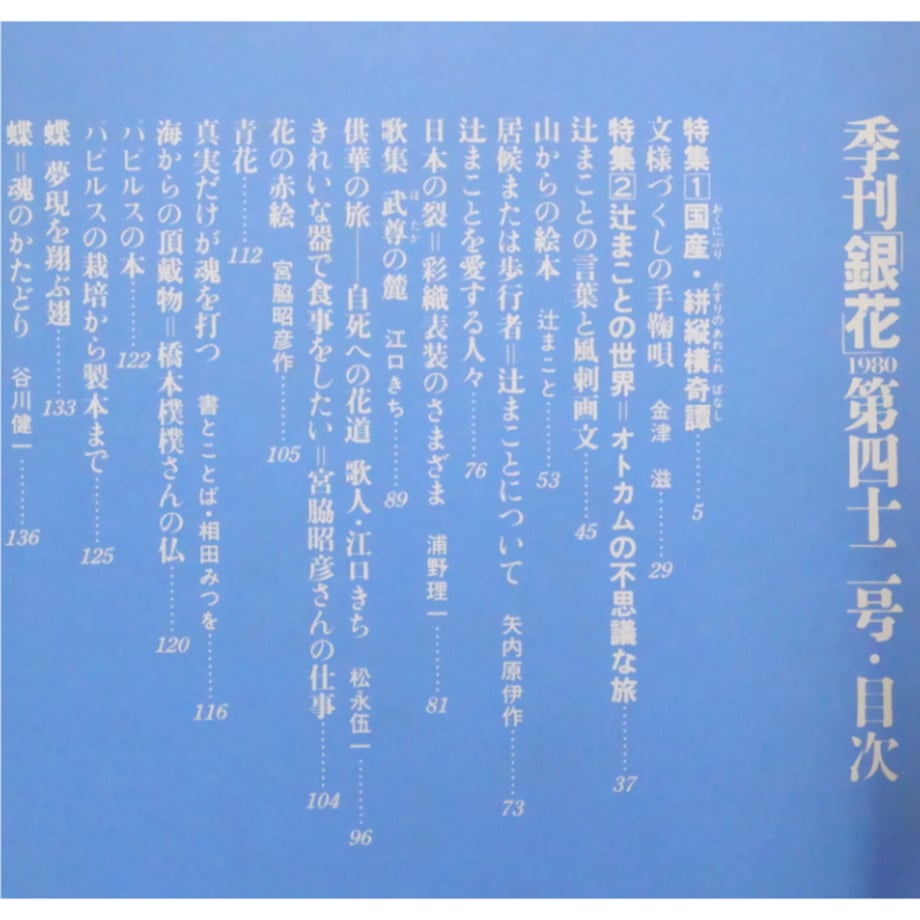 季刊「銀花」1980第四十二号・目次
特集1国産・絣縦横奇譚……5
おくにぶり かすりのあれこれ ばなし
文様づくしの手鞠唄 金津 滋……29
特集2辻まことの世界＝オトカムの不思議な旅……37
辻まことの言葉と風刺画文……45
山からの絵本 辻まこと……53
居候または歩行者＝辻まことについて 矢内原伊作……73
辻まことを愛する人々……76
日本の裂＝彩織表装のさまざま 浦野理一……81
歌集 武尊の麓 江口きち……89
ほたか
供華の旅――自死への花道 歌人・江口きち 松永伍一……96
きれいな器で食事をしたい＝宮脇昭彦さんの仕事……104
花の赤絵 宮脇昭彦作……105
青花……112
真実だけが魂を打つ 書とことば・相田みつを……116
海からの頂戴物＝橋本樸樸さんの仏……120
パピルスの本……122
パピルスの栽培から製本まで……125
蝶 夢現を翔ぶ翅……133
蝶＝魂のかたどり 谷川健一……136